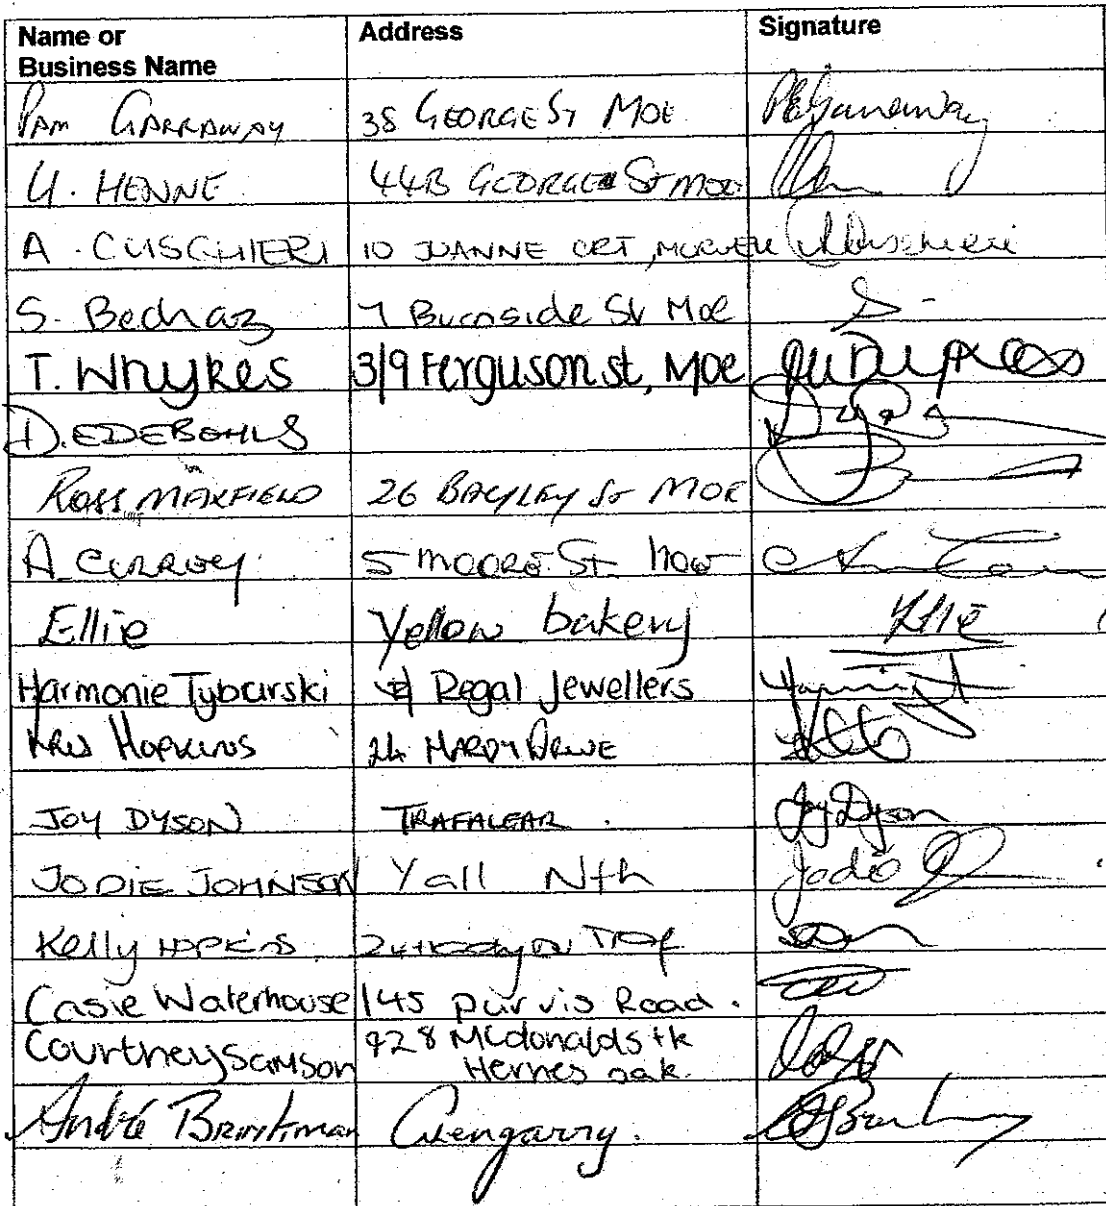 Name or Business Name Address Signature
PAM GARRAWAY 38 GEORGE ST MOE PEGarraway
U. HENNE 44B GEORGE ST MOE
A. CUSCHIERI 10 JOANNE CRT, MORWELL
S. Bednaz 7 Burnside St Moe
T. Whykes 3/9 Ferguson st, Moe
D. EDEBOHLS
ROSS MAXFIELD 26 BAYLEY ST MOE
A CURREY 5 MOORE ST MOE
Ellie Yellow bakery Ellie
Harmonie Tybarski Regal Jewellers
KRIS HOPKINS 24 HARDY DRIVE
JOY DYSON TRAFALGAR Joy Dyson
JODIE JOHNSON Yall Nth Jodie
Kelly HOPKINS 24 Hardy Dv Traf
Casie Waterhouse 145 purvis Road.
Courtney Samson 928 Mcdonalds tk
Hernes oak.
André Brinkman Glengarry.